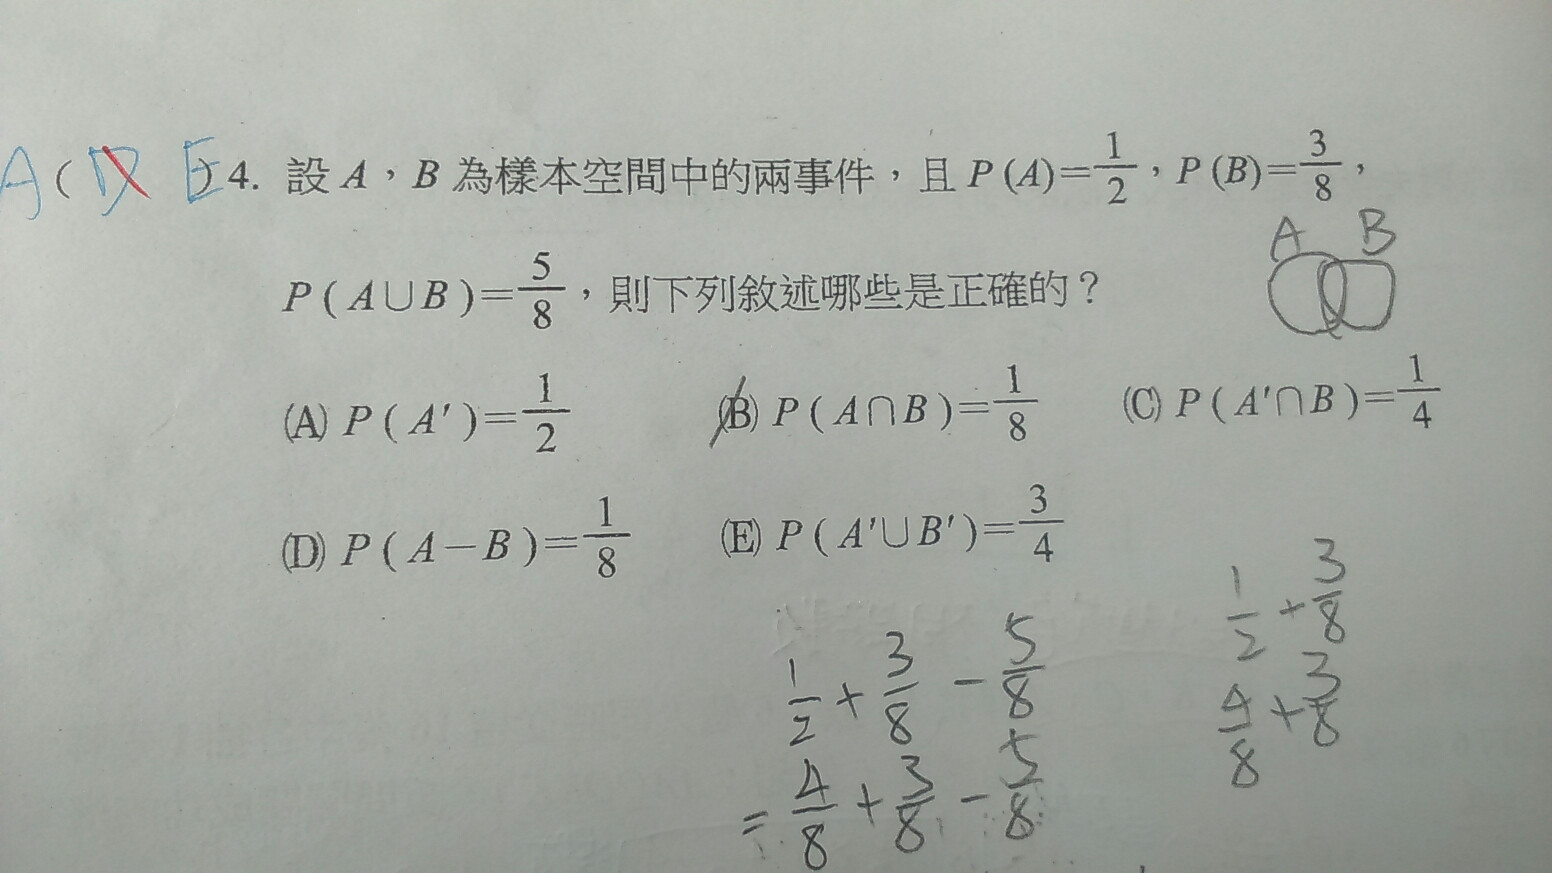 A ( D E ) 4. 設 A，B 為樣本空間中的兩事件，且 P(A)=1/2，P(B)=3/8，
A B
P(A∪B)=5/8，則下列敘述哪些是正確的？
(A) P(A′)=1/2 (B) P(A∩B)=1/8 (C) P(A′∩B)=1/4
(D) P(A−B)=1/8 (E) P(A′∪B′)=3/4
1/2 + 3/8
1/2 + 3/8 - 5/8
4/8 + 3/8
= 4/8 + 3/8 - 5/8